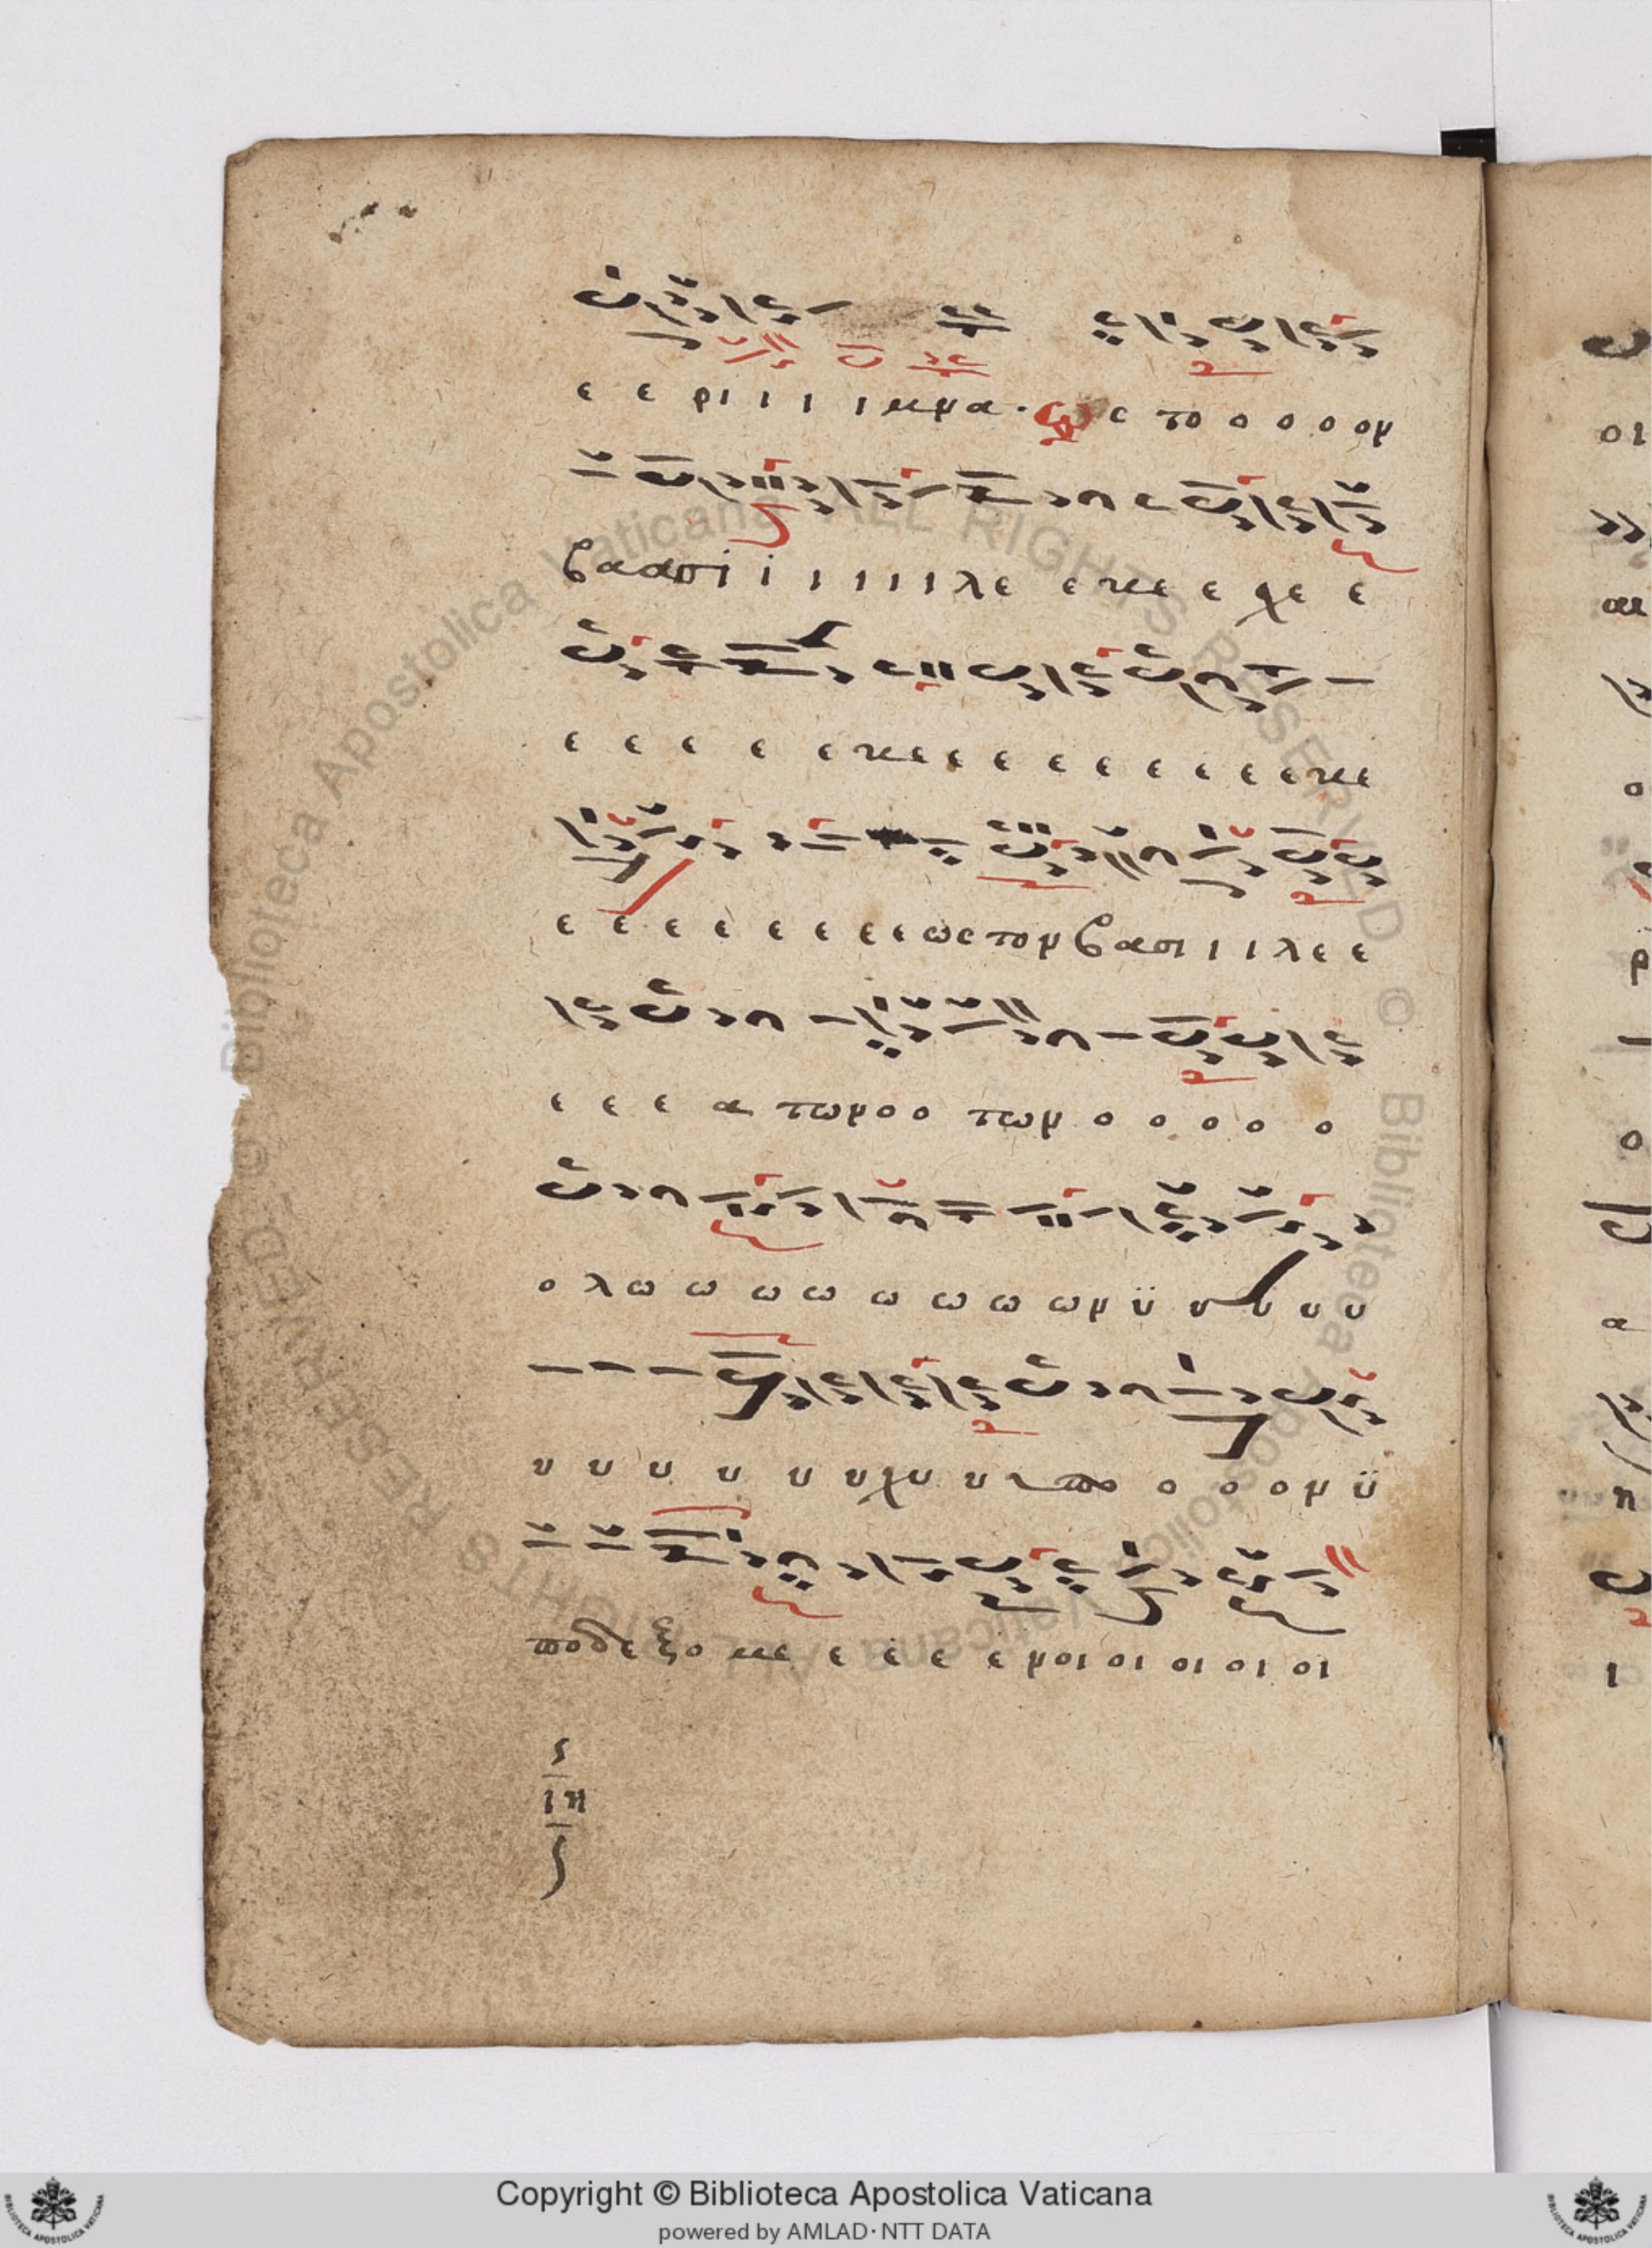 ε ε ρι ι ι ι κμα · ως το ο ο ο ον
βαασι ι ι ι ι ι λε ε κε ε χε ε
ε ε ε ε ε κε ε ε ε ε ε ε ε ε κε
ε ε ε ε ε ε ε ε ως τον βασι ι ι λε ε
ε ε ε α των ο ο των ο ο ο ο ο
ο λω ω ω ω ω ω ω ων ϋ υ υ υ υ
υ υ υ υ υ υ χυ υ πο ο ο ον ϋ
ποδεξο με ε ε ε ε νοι οι οι οι οι
ιη
Copyright © Biblioteca Apostolica Vaticana
powered by AMLAD·NTT DATA